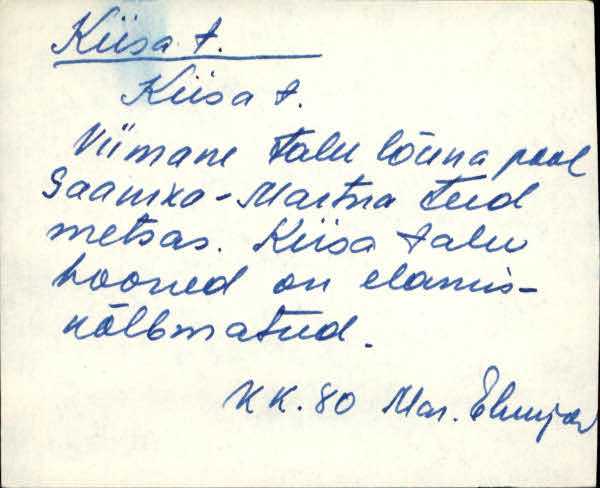 Kiisa t.
Kiisa t.
Viimane talu lõuna pool
Saanika-Martna teid
metsas. Kiisa talu
hooned on elamis-
kõlbmatud.
KK. 80 Mar.